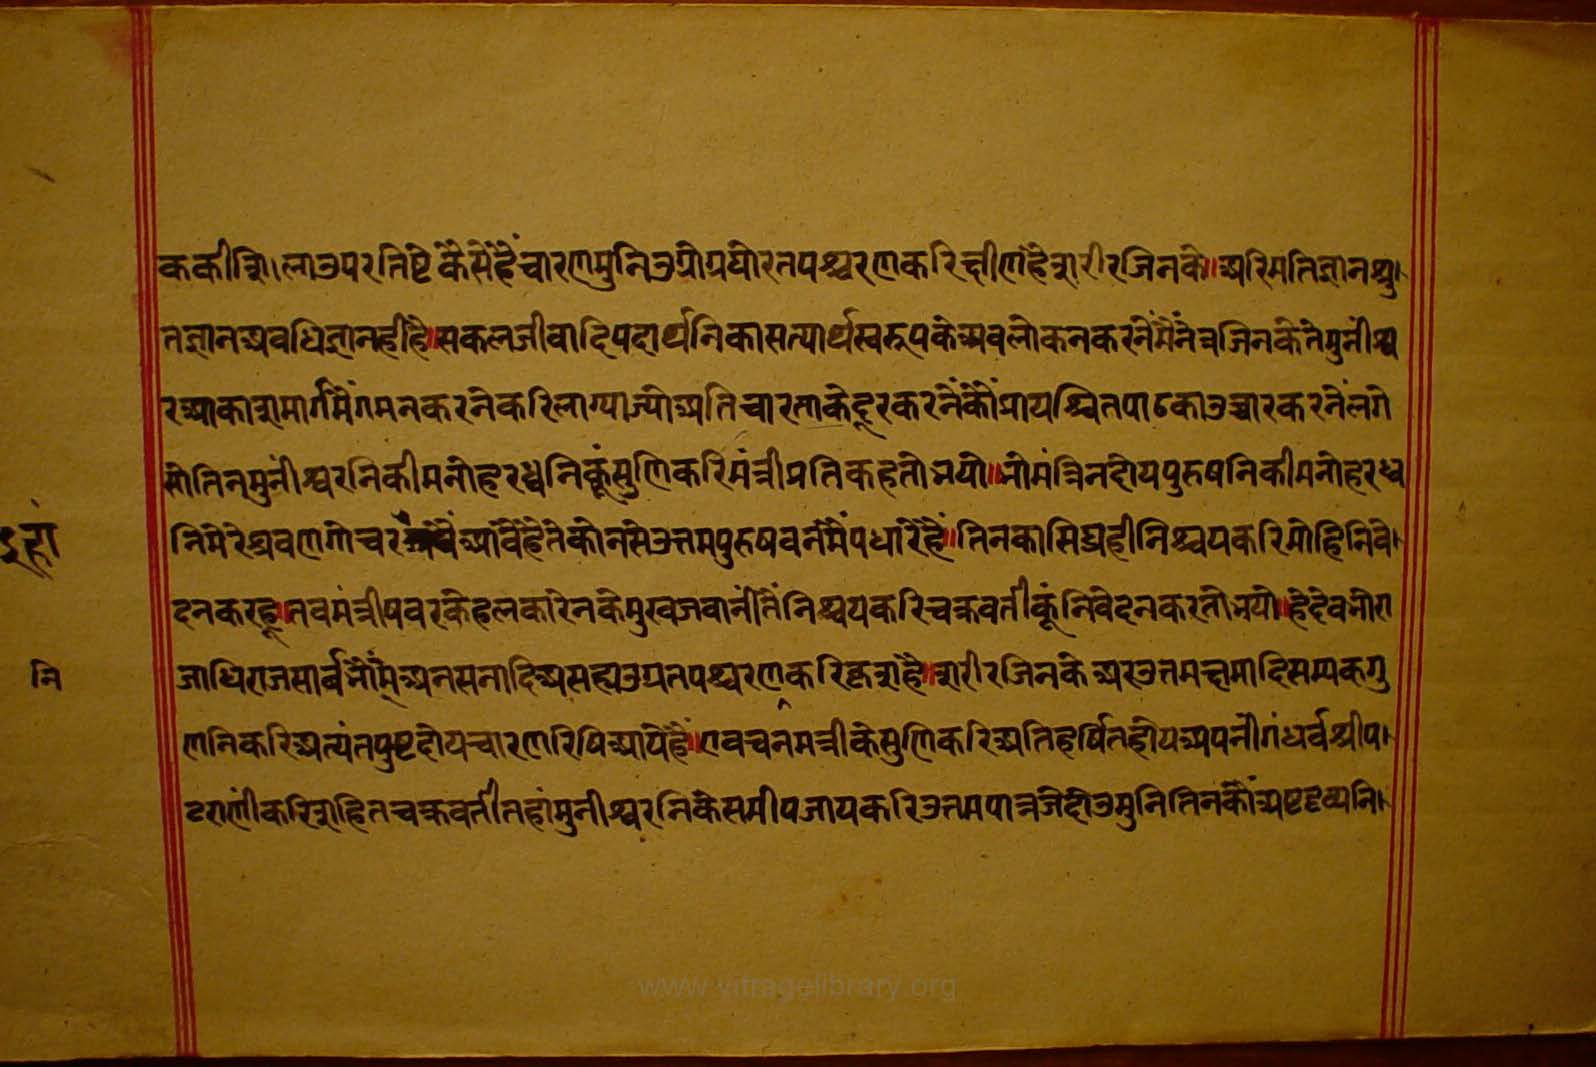 ककीशिलाउपरतिष्टेकैसेहैंचारणमुनिउग्रोग्रघोरतपश्चरणकरिक्षीणहैशरीरजिनके॥अरिमतिज्ञानश्रु
तज्ञानअवधिज्ञानहीहै॥सकलजीवादिपदार्थनिकासत्यार्थस्वरूपकेअवलोकनकरनेंमैंनेत्रजिनकेतेमुनीश्व
रआकाशमार्गमैंगमनकरनेकरिलाग्याज्योअतिचारताकेदूरकरनेंकौंप्रायश्चितपाठकोउच्चारकरनेंलगे
सोतिन्मुनीश्वरनिकीमनोहरध्वनिकूंसुणिकरिमंत्रीप्रतिकहतोभयो॥भोमंत्रिनदोयपुरुषनिकीमनोहरध्व
निमेरेश्रवणगोचरआवैहैतेकोनसेउत्तमपुरुषवनमैंपधारेहैं॥तिनकासिघ्रहीनिश्चयकरिमोहिनिवे
दनकरहू॥तवमंत्रीषवरकेहलकारेनकेमुखजवानीतैंनिश्चयकरिचक्रवर्तीकूंनिवेदनकरतोभयो॥हेदेवभोरा
जाधिराजसार्वभौम्अनसनादिअसह्यउग्रतपश्चरणकरिकृशहै॥शरीरजिनकेअरउत्तमक्षमादिसम्यकगु
णनिकरिअत्यंतपुष्टदोयचारणरिषिआयेहैं॥एवचनमंत्रीकेसुणिकरिअतिहर्षितहोयअपनीगंधर्वश्रीप
टराणीकरिशहितचक्रवर्तीतहांमुनीश्वरनिकेसमीपजायकरिउत्तमपात्रजेदोउमुनितिनकौंअष्टद्रव्यनि
इहां
नि
www.vitragelibrary.org